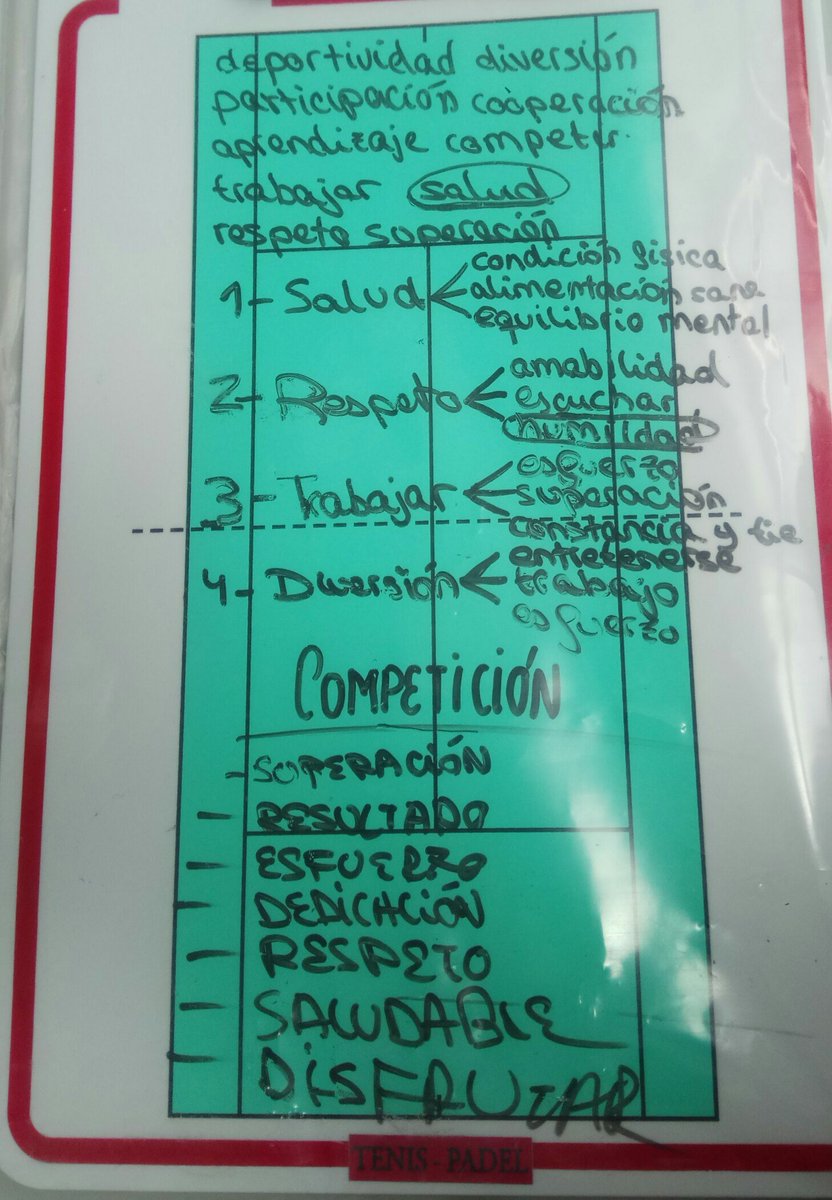 deportividad diversión
participación cooperación
aprendizaje competir
trabajar salud
respeto superación
condición física
1- Salud < alimentación sana
equilibrio mental
amabilidad
2- Respeto < escuchar
humildad
esfuerzo
3- Trabajar < superación
constancia y tie
entretenerse
4- Diversión < trabajo
esfuerzo
COMPETICIÓN
- SUPERACIÓN
- RESULTADO
- ESFUERZO
- DEDICACIÓN
- RESPETO
- SALUDABLE
- DISFRUTAR
TENIS - PADEL